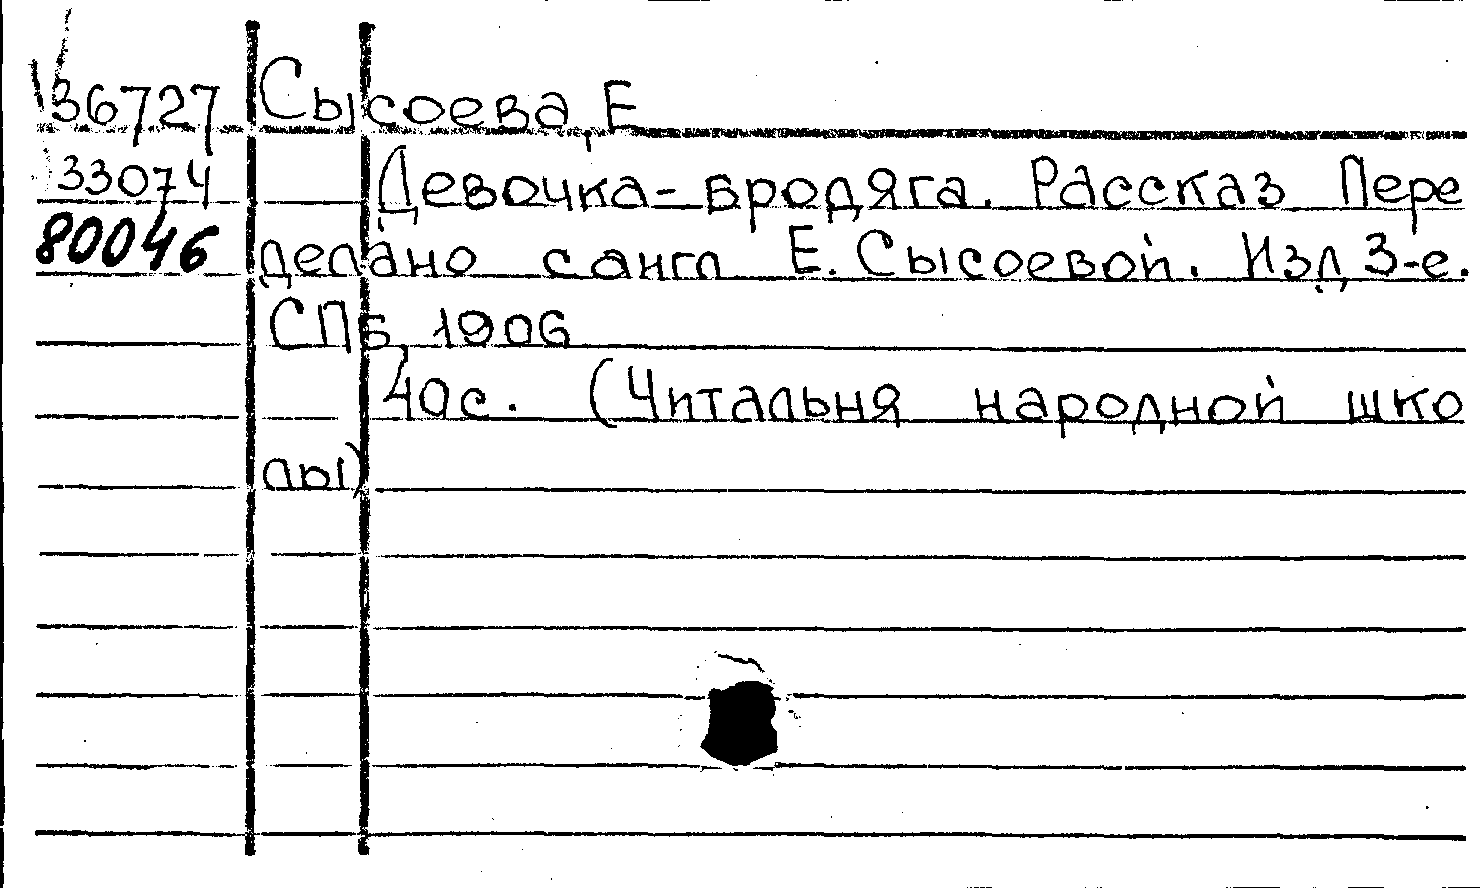 36727 Сысоева, Е
33074 Девочка-бродяга. Рассказ Пере
80046 делано с англ Е. Сысоевой. Изд, 3-е.
СПБ, 1906
40с. (Читальня народной шко
лы)